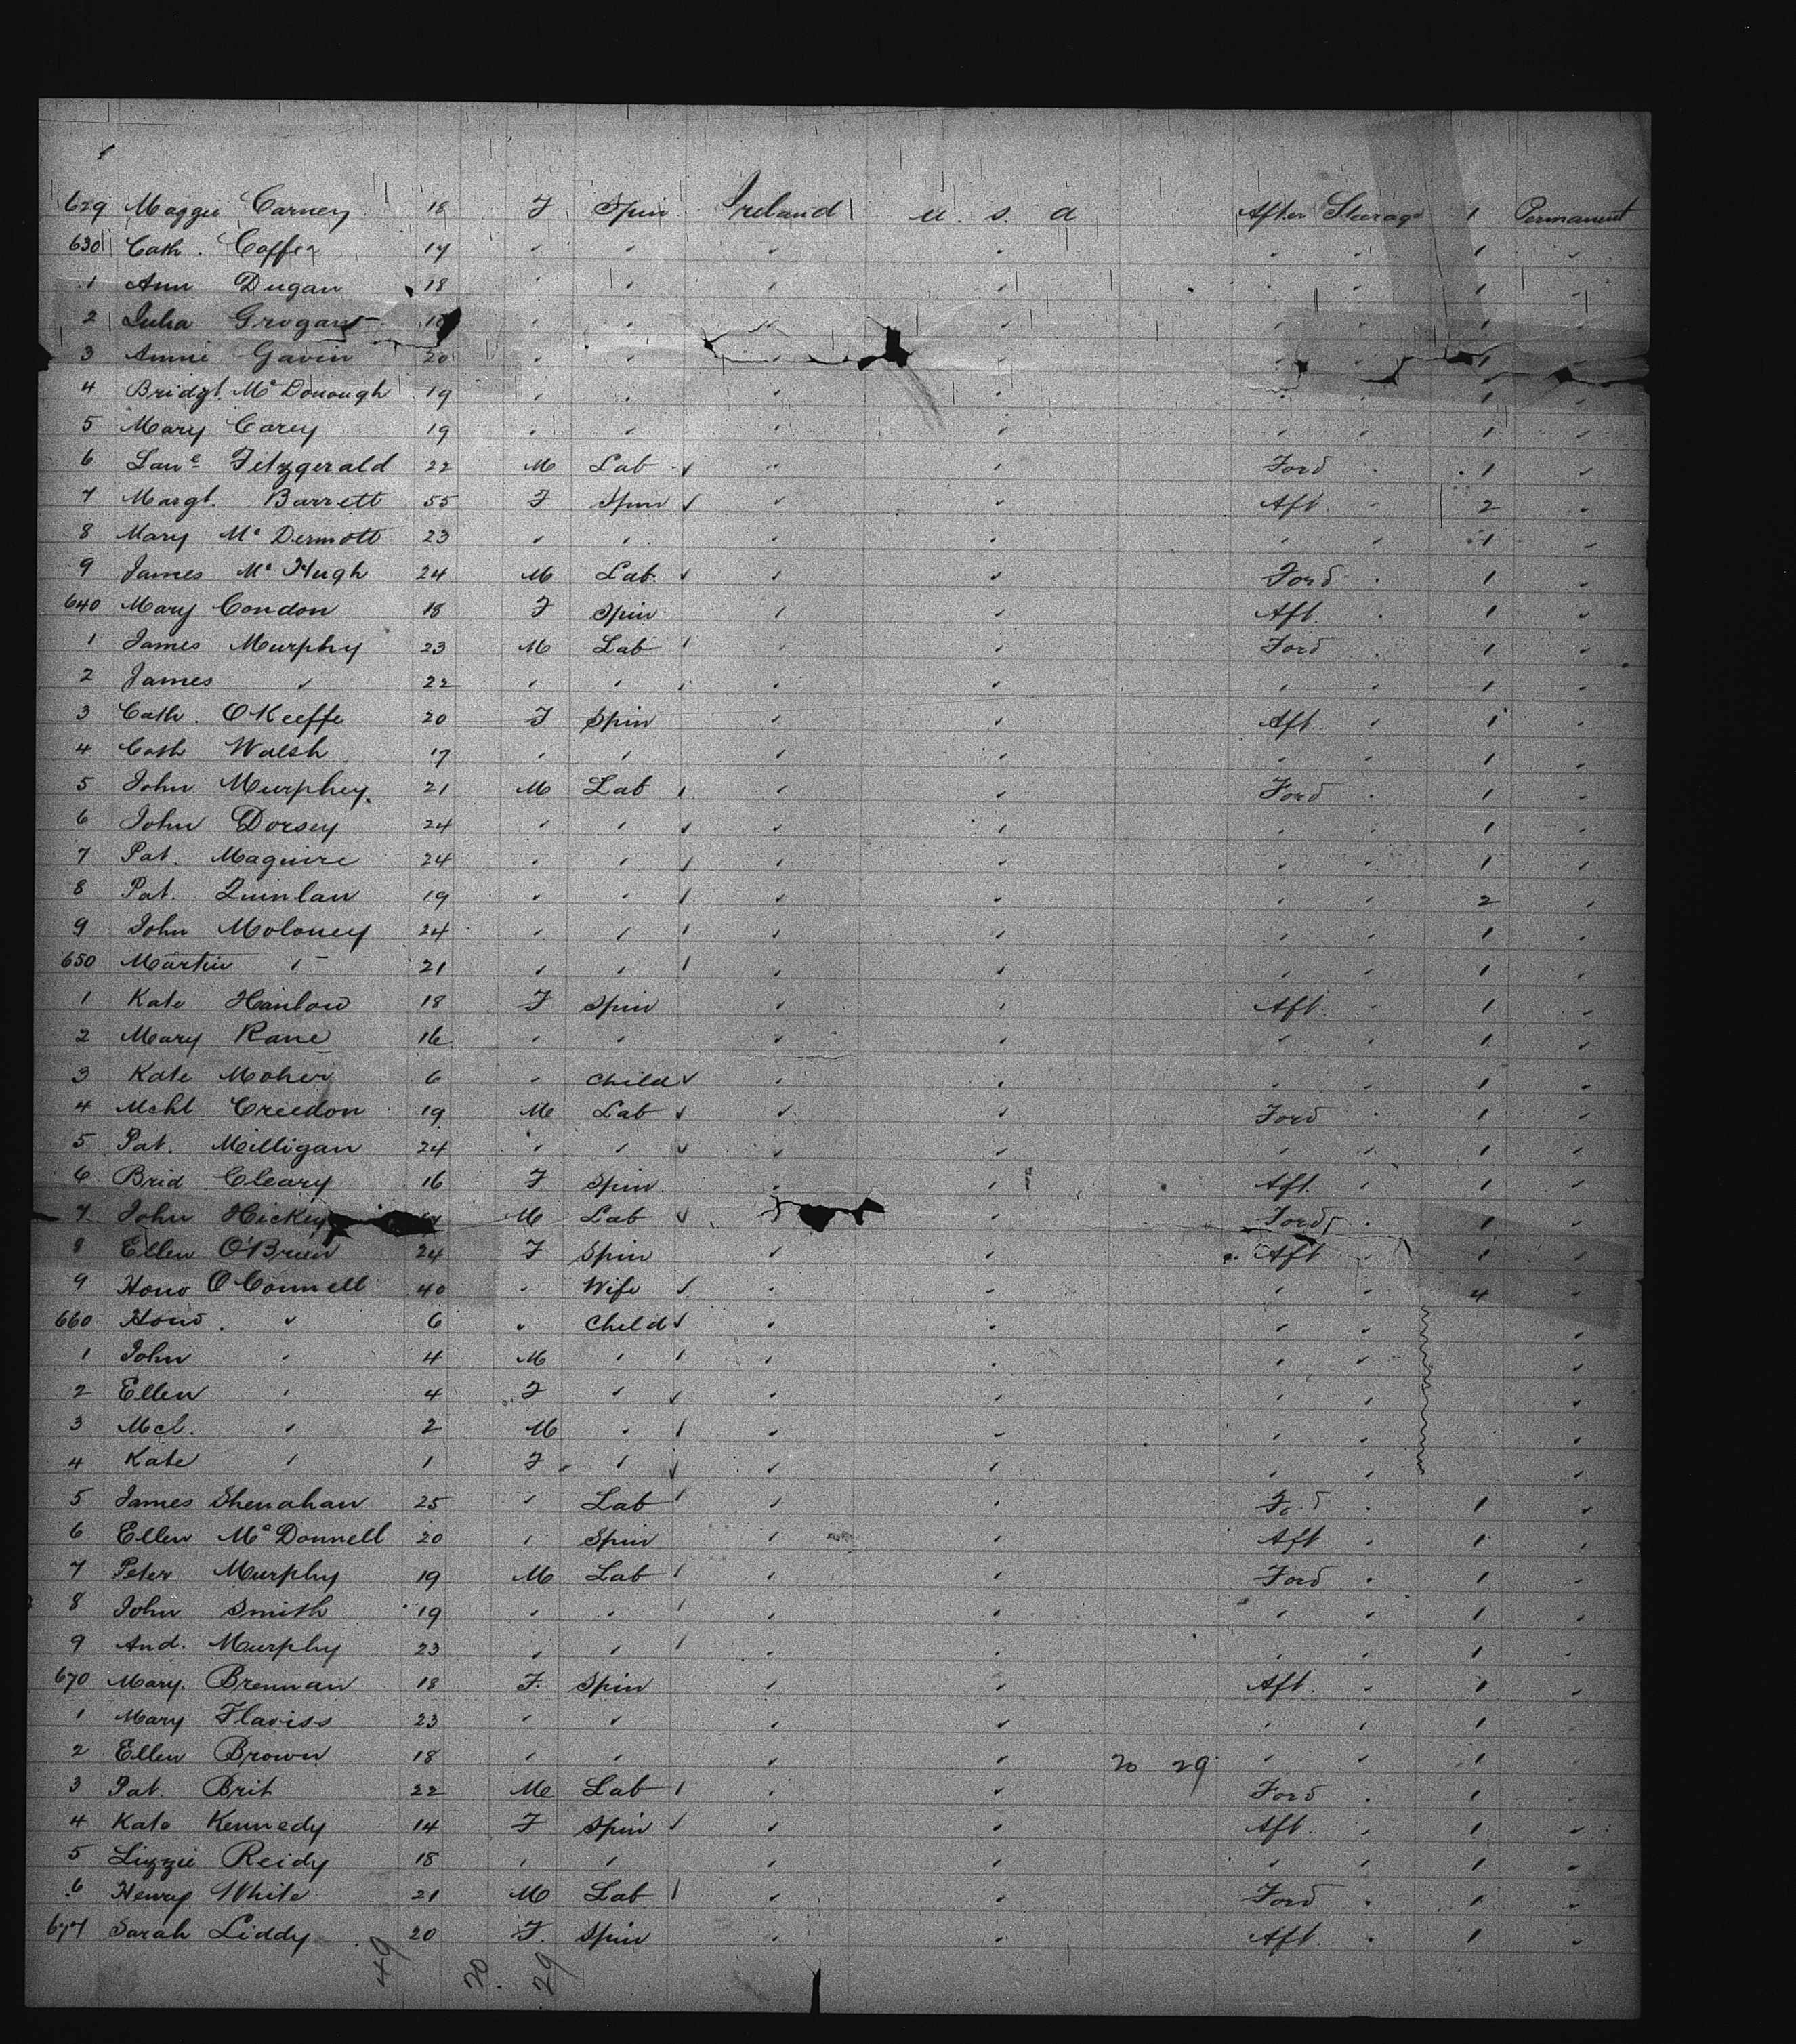 629 Maggie Carney 18 F Spin Ireland U. S. A After Steerage 1 Permanent
630 Cath. Coffey 17 " " " " " " 1 "
1 Ann Dugan 18 " " " " " " 1 "
2 Julia Grogan " " " " " " 1 "
3 Annie Gavin 20 " " " " " " 1 "
4 Bridgt. McDonough 19 " " " " " " 1 "
5 Mary Carey 19 " " " " " " 1 "
6 Lawe Fitzgerald 22 M Lab ✓ " " Ford " 1 "
7 Margt. Barrett 55 F Spin ✓ " " Aft. " 2 "
8 Mary McDermott 23 " " " " " " 1 "
9 James McHugh 24 M Lab. ✓ " " Ford " 1 "
640 Mary Condon 18 F Spin " " Aft. " 1 "
1 James Murphy 23 M Lab / " " Ford " 1 "
2 James " 22 " " / " " " " 1 "
3 Cath. OKeeffe 20 F Spin " " Aft. " 1 "
4 Cath Walsh 17 " " " " " " 1 "
5 John Murphey. 21 M Lab / " " Ford " 1 "
6 John Dorsey 24 " " ✓ " " " " 1 "
7 Pat. Maguire 24 " " / " " " " 1 "
8 Pat. Quinlan 19 " " / " " " " 2 "
9 John Moloney 24 " " / " " " " 1 "
650 Martin " 21 " " / " " " " 1 "
1 Kate Hanlow 18 F Spin " " Aft. " 1 "
2 Mary Kane 16 " " " " " " 1 "
3 Kate Moher 6 " Child ✓ " " " " 1 "
4 Mchl Creedon 19 M Lab ✓ " " Ford " 1 "
5 Pat. Milligan 24 " " ✓ " " " " 1 "
6 Brid Cleary 16 F Spin " " Aft. " 1 "
7 John Hickey M Lab ✓ " " Ford " 1 "
8 Ellen O'Brien 24 F Spin " " Aft " 1 "
9 Hono O'Connell 40 " Wife ✓ " " " " 4 "
660 Hono. " 6 " Child ✓ " " " " "
1 John " 4 M " / " " " " "
2 Ellen " 4 F " ✓ " " " " "
3 Mcl. " 2 M " / " " " " "
4 Kate " 1 F " ✓ " " " " "
5 James Shenahan 25 " Lab / " " Ford " 1 "
6 Ellen McDonnell 20 " Spin " " Aft " 1 "
7 Peter Murphy 19 M Lab / " " Ford " 1 "
8 John Smith 19 " " / " " " " 1 "
9 And. Murphy 23 " " / " " " " 1 "
670 Mary. Brennan 18 F. Spin " " Aft. " 1 "
1 Mary Flaviss 23 " " " " " " 1
2 Ellen Brown 18 " " " " 20 29 " " 1 "
3 Pat. Brit 22 M Lab / " " Ford " 1 "
4 Kate Kennedy 14 F Spin ✓ " " Aft. " 1 "
5 Lizzie Reidy 18 " " " " " " 1 "
6 Henry White 21 M Lab / " " Ford " 1 "
677 Sarah Liddy 20 F. Spin " " Aft. " 1 "
49 20. 29